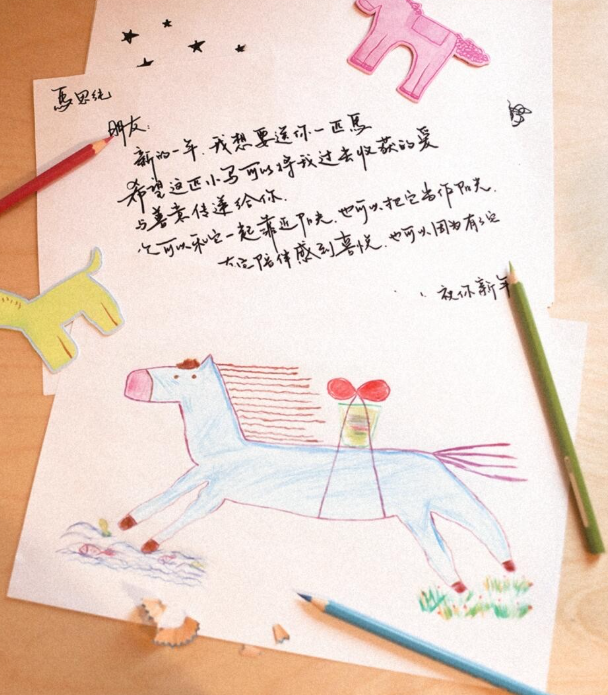 马思纯
朋友:
新的一年,我想要送你一匹马
希望这匹小马可以将我过去收获的爱
与善意传递给你.
你可以和它一起靠近阳光,也可以把它当作阳光.
大笑陪伴感到喜悦,也可以因为有它
祝你新年